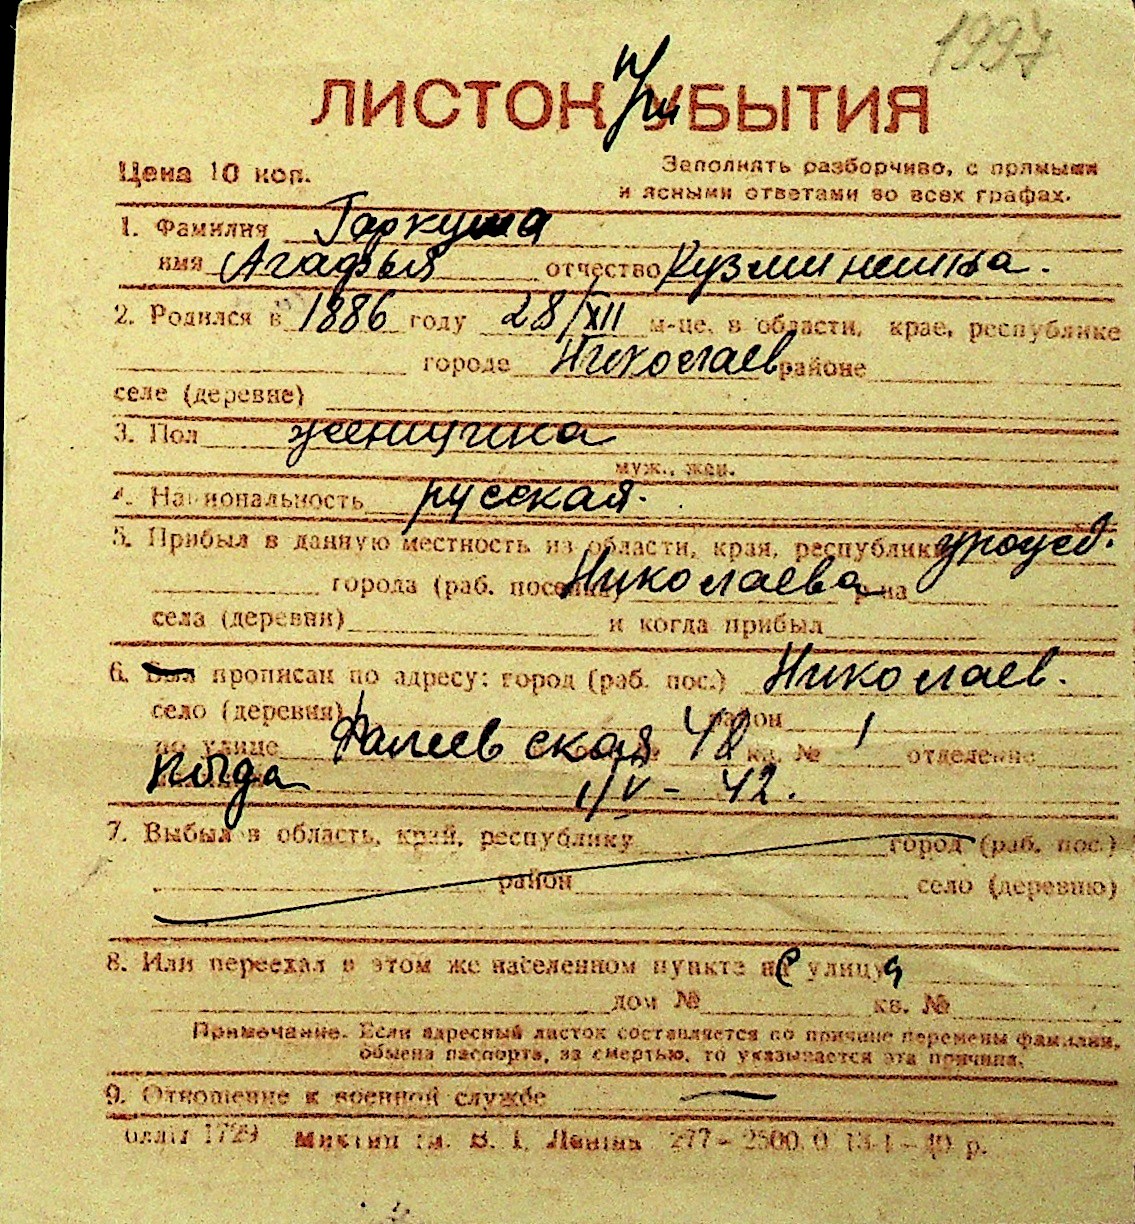 1997
ЛИСТОК При УБЫТИЯ
Цена 10 коп. Заполнять разборчиво, с прямыми
и ясными ответами во всех графах.
1. Фамилия Гаркуша
имя Агафья отчество Кузминишна.
2. Родился в 1886 году 28/XII м-це, в области, крае, республике
городе Николаев районе
селе (деревне)
3. Пол женщина
муж., жен.
4. Национальность русская.
5. Прибыл в данную местность из области, края, республики урожед.
города (раб. поселка) Николаева р-на
села (деревни) и когда прибыл
6. Был прописан по адресу: город (раб. пос.) Николаев.
село (деревня) район
по улице Фалеевская 48 кв. № 1 отделение
когда 1/V - 42.
7. Выбыл в область, край, республику город (раб. пос.)
район село (деревню)
8. Или переехал в этом же населенном пункте с улицы
дом № кв. №
Примечание. Если адресный листок составляется по причине перемены фамилии,
обмена паспорта, за смертью, то указывается эта причина.
9. Отношение к военной службе —
1729 В. І. Леніна 277 - 2500.0 13-1 - 40 р.